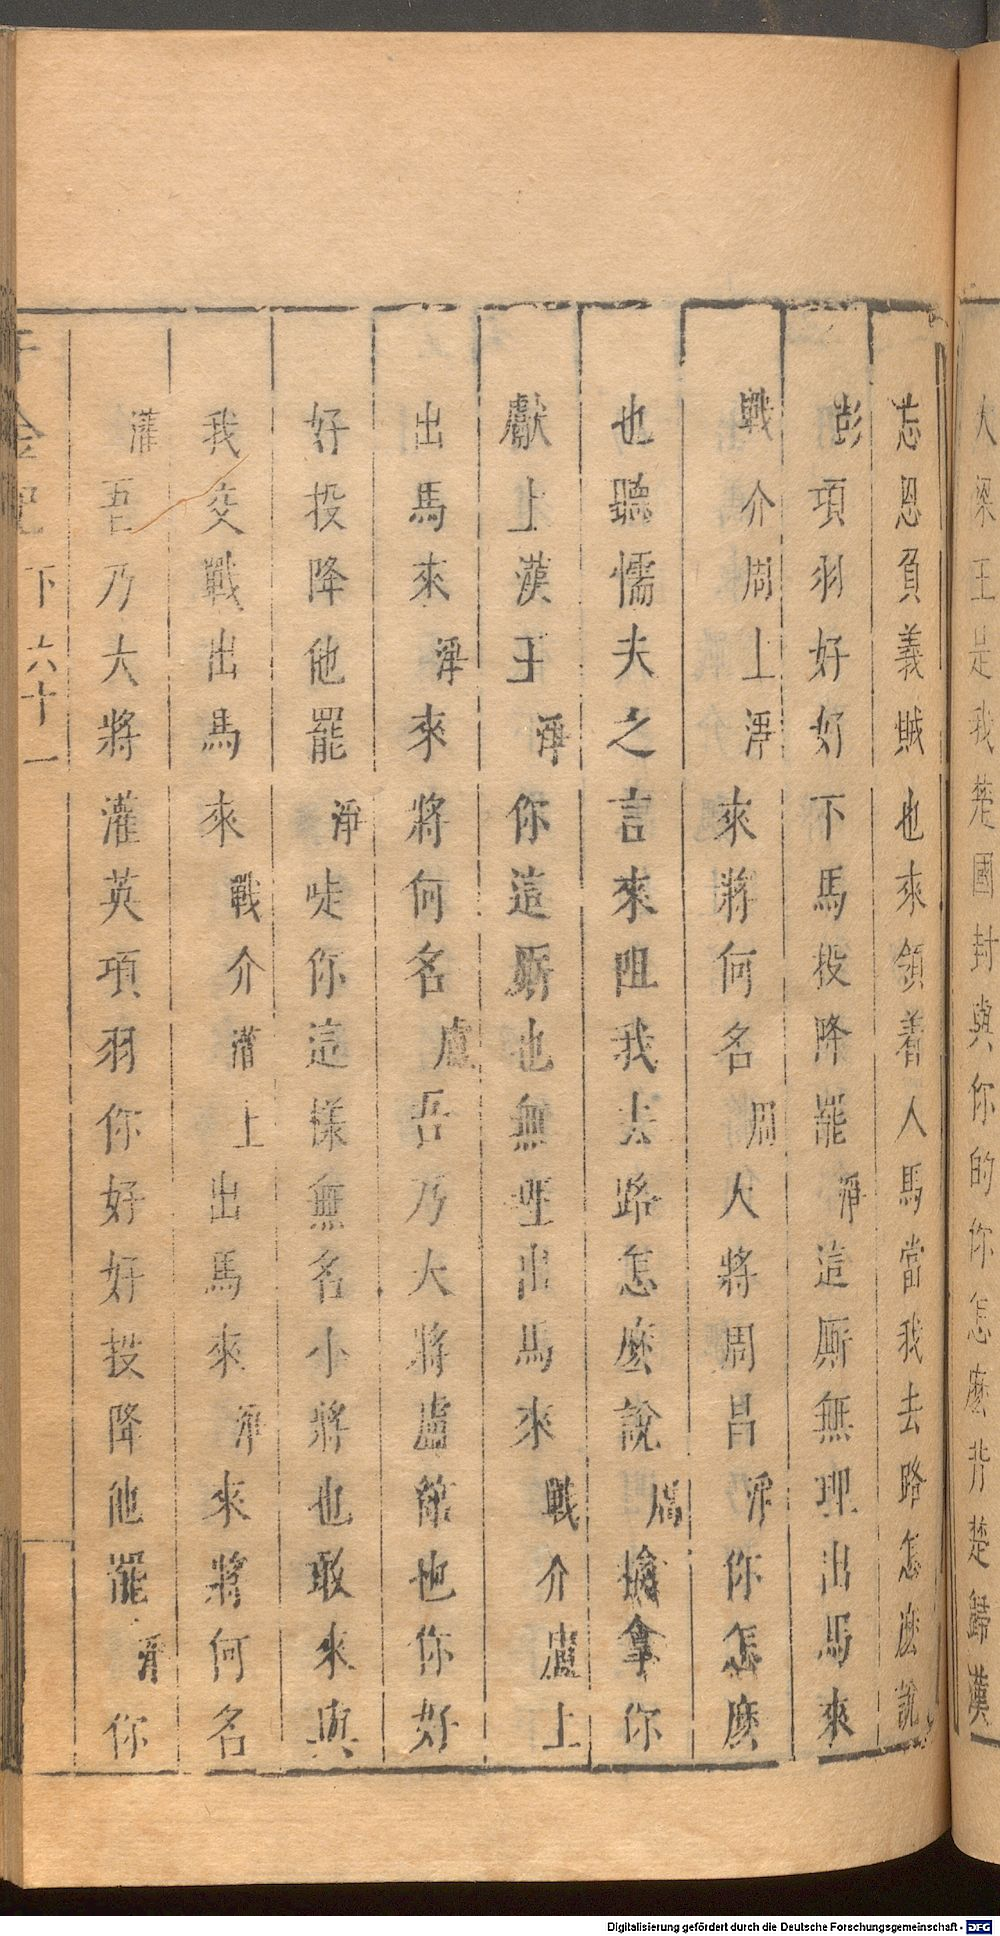 大梁王是我楚國封與你的你怎麽背楚歸漢
忘恩負義賊也來領着人馬當我去路怎麽說
彭項羽好好下馬投降罷淨這厮無理出馬來
戰介周上淨來將何名周大將周昌淨你怎麽
也聽懦夫之言來阻我去路怎麽說周擒拿你
獻上漢王淨你這厮也無理出馬來戰介盧上
出馬來淨來將何名盧吾乃大將盧綰也你好
好投降他罷淨唗你這樣無名小將也敢來與
我交戰出馬來戰介灌上出馬來淨來將何名
灌吾乃大將灌英項羽你好好投降他罷淨你
千金記 下 六十一
Digitalisierung gefördert durch die Deutsche Forschungsgemeinschaft - DFG